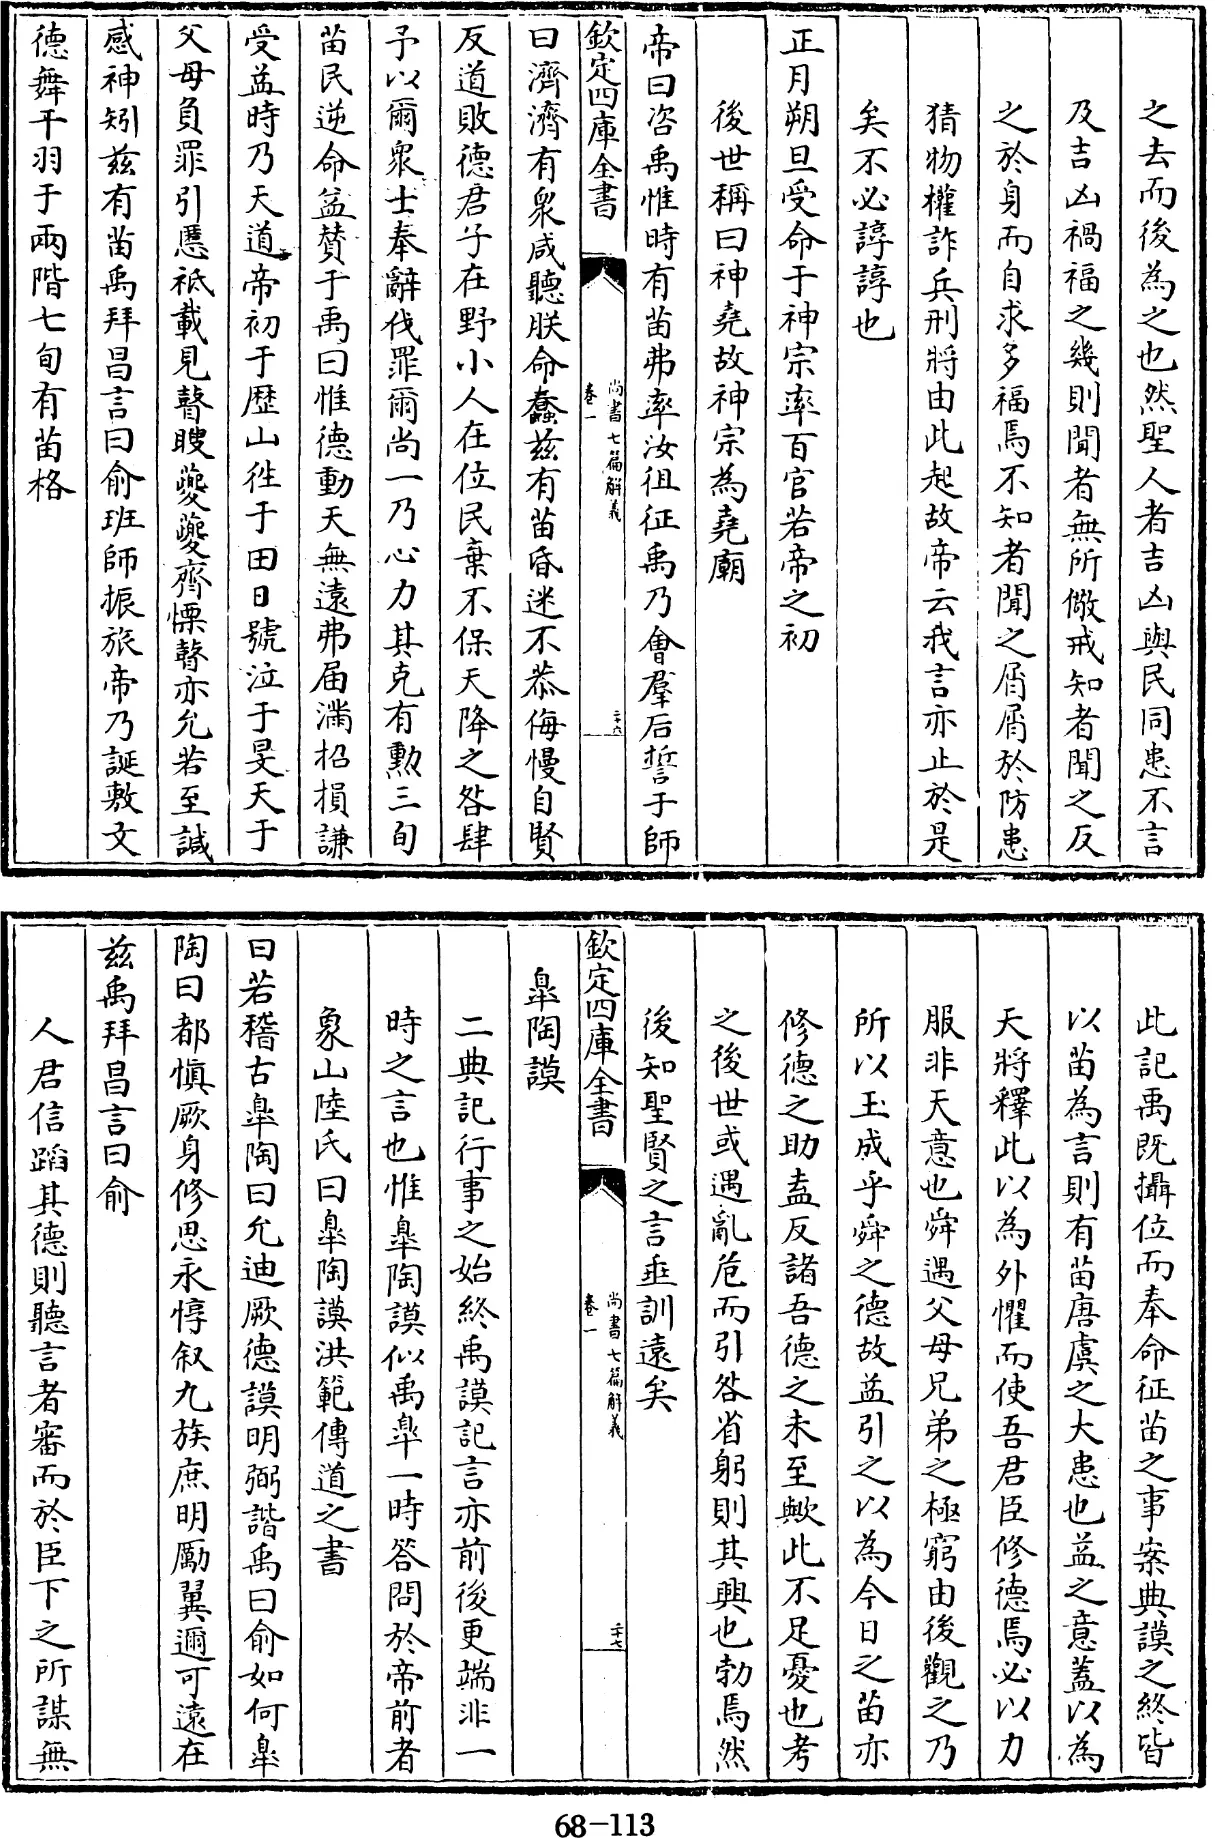 之去而後為之也然聖人者吉凶與民同患不言
及吉凶禍福之幾則聞者無所儆戒知者聞之反
之於身而自求多福焉不知者聞之屑屑於防患
猜物權詐兵刑將由此起故帝云我言亦止於是
矣不必諄諄也
正月朔旦受命于神宗率百官若帝之初
後世稱曰神堯故神宗為堯廟
帝曰咨禹惟時有苗弗率汝徂征禹乃會羣后誓于師
欽定四庫全書
尚書七篇解義
卷一
二十六
曰濟濟有衆咸聽朕命蠢兹有苗昏迷不恭侮慢自賢
反道敗德君子在野小人在位民棄不保天降之咎肆
予以爾衆士奉辭伐罪爾尚一乃心力其克有勲三旬
苗民逆命益賛于禹曰惟德動天無遠弗届滿招損謙
受益時乃天道帝初于歷山徃于田日號泣于旻天于
父母負罪引慝祗載見瞽瞍夔夔齊慄瞽亦允若至諴
感神矧兹有苗禹拜昌言曰俞班師振旅帝乃誕敷文
德舞干羽于兩階七旬有苗格
此記禹既攝位而奉命征苗之事案典謨之終皆
以苗為言則有苗唐虞之大患也益之意蓋以為
天將釋此以為外懼而使吾君臣修德焉必以力
服非天意也舜遇父母兄弟之極窮由後觀之乃
所以玉成乎舜之德故益引之以為今日之苗亦
修德之助盍反諸吾德之未至歟此不足憂也考
之後世或遇亂危而引咎省躬則其興也勃焉然
後知聖賢之言垂訓遠矣
欽定四庫全書
尚書七篇解義
卷一
二十七
皐陶謨
二典記行事之始終禹謨記言亦前後更端非一
時之言也惟皐陶謨似禹皐一時答問於帝前者
象山陸氏曰皐陶謨洪範傳道之書
曰若稽古皐陶曰允迪厥德謨明弼諧禹曰俞如何皐
陶曰都慎厥身修思永惇叙九族庶明勵翼邇可遠在
兹禹拜昌言曰俞
人君信蹈其德則聽言者審而於臣下之所謀無
68-113